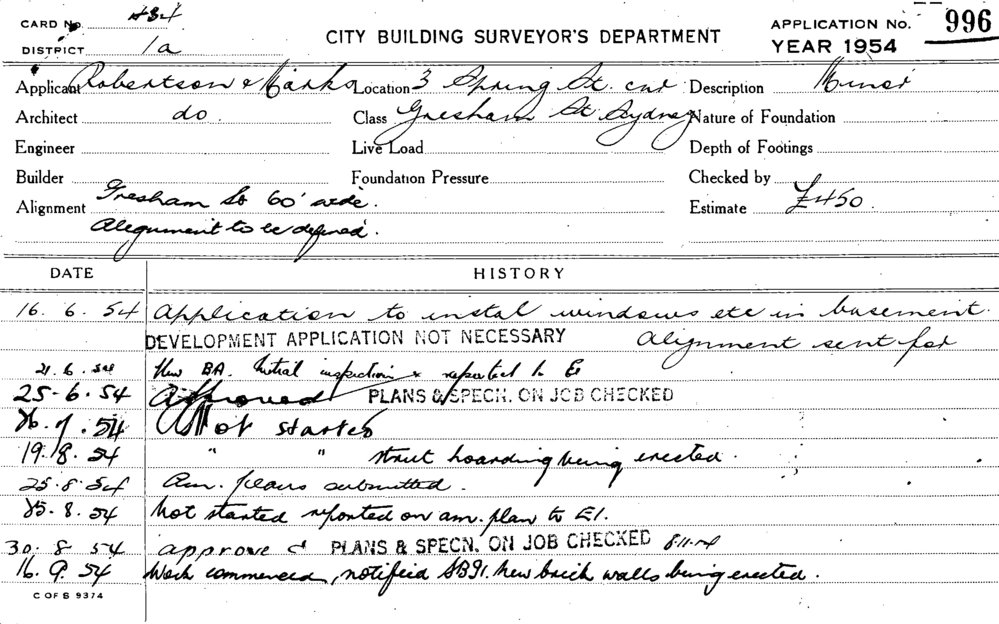 CARD No. A34
DISTRICT 1a
CITY BUILDING SURVEYOR'S DEPARTMENT
APPLICATION No. 996
YEAR 1954
Applicant Robertson & Marks Location 3 Spring St. cnr Description Minor
Architect do. Class Gresham St Sydney Nature of Foundation
Engineer Live Load Depth of Footings
Builder Foundation Pressure Checked by
Alignment Gresham St 60' wide. Estimate £450.
Alignment to be defined.
DATE HISTORY
16. 6. 54 Application to instal windows etc in basement.
DEVELOPMENT APPLICATION NOT NECESSARY Alignment sent for
21. 6. 54 New BA. Initial inspection & reported to E1
25-6. 54 Approved PLANS & SPECN. ON JOB CHECKED
26. 7. 54 Not started
19. 8. 54 " " strut hoarding being erected.
25. 8. 54 Am. plans submitted.
25. 8. 54 Not started reported on am. plan to E1.
30. 8 54 approved PLANS & SPECN. ON JOB CHECKED
16. 9. 54 Work commenced, notified SB91. New brick walls being erected.
C OF S 9374